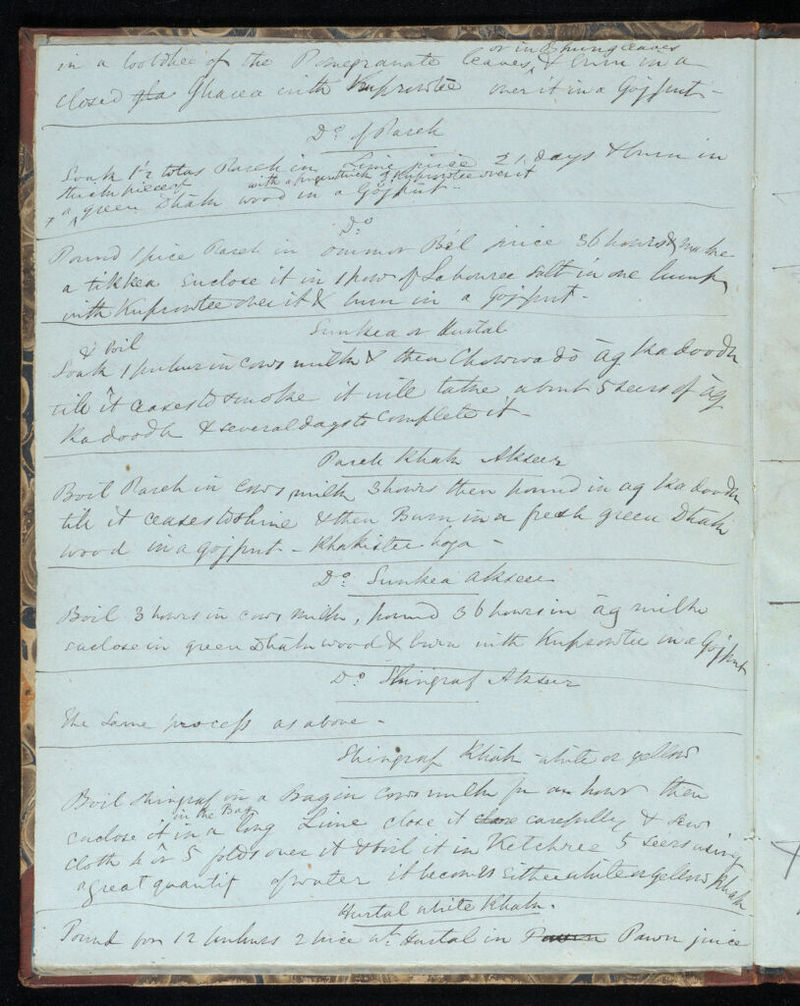 or in Bhung leaves
in a Lootdhee of the Pomegranate leaves, & burn in a
closed Gharea with Kuprowtee over it in a Gojput -
Do of Pareh
Soak 1½ totas Pareh in Lime juice 21 days & burn in
thick piece of with a finger thick of Kuprowtee over it
a green Dhâk wood in a Gojput -
Do
Pound 1 pice Pareh in Bél juice 36 hours & make
a tikkea enclose it in 1 pow of Lahouree Salt in one lump
with Kuprowtee over it & burn in a Gojput -
Sunkea or Hurtal
& boil
Soak 1 puhur in cows milk & then Chowwa dô âg ka doodh
till it ceases to smoke it will take about 5 seers of âg
ka doodh & several days to complete it -
Pareh Khak Akseer
Boil Pareh in cows milk 3 hours then pound in ag ka doodh
till it ceases to shine & then Burn in a fresh green Dhâk
wood in a gojput - Khakister hoja -
Do Sunkea akseer
Boil 3 hours in cows milk, pound 36 hours in âg milk
enclose in green Dhâk wood & burn with Kuprowtee in a Gojput
Do Shingraf Akseer
The Same process as above -
Shingraf Khak white or yellow
Boil Shingraf in a Bag in cows milk for an hour then
in the Bag
enclose it in a long Lime close it carefully & sew
cloth 4 or 5 folds over it & boil it in Ketchree 5 seers using
a great quantity of water it becomes either white or yellow Khak
Hurtal white Khak.
Pound for 12 puhurs 2 pice wt. Hurtal in Pawn juice